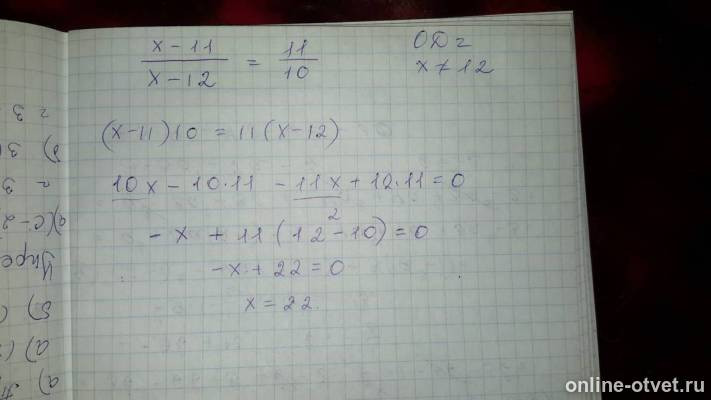 x-11 / x-12 = 11 / 10
ОДЗ
x ≠ 12
(x-11)10 = 11(x-12)
10x - 10·11 - 11x + 12·11 = 0
2
-x + 11(12-10) = 0
-x + 22 = 0
x = 22.
= 3
б) 3
= 3
а)(c-2
Упре
б) (
а) (
а)
online-otvet.ru